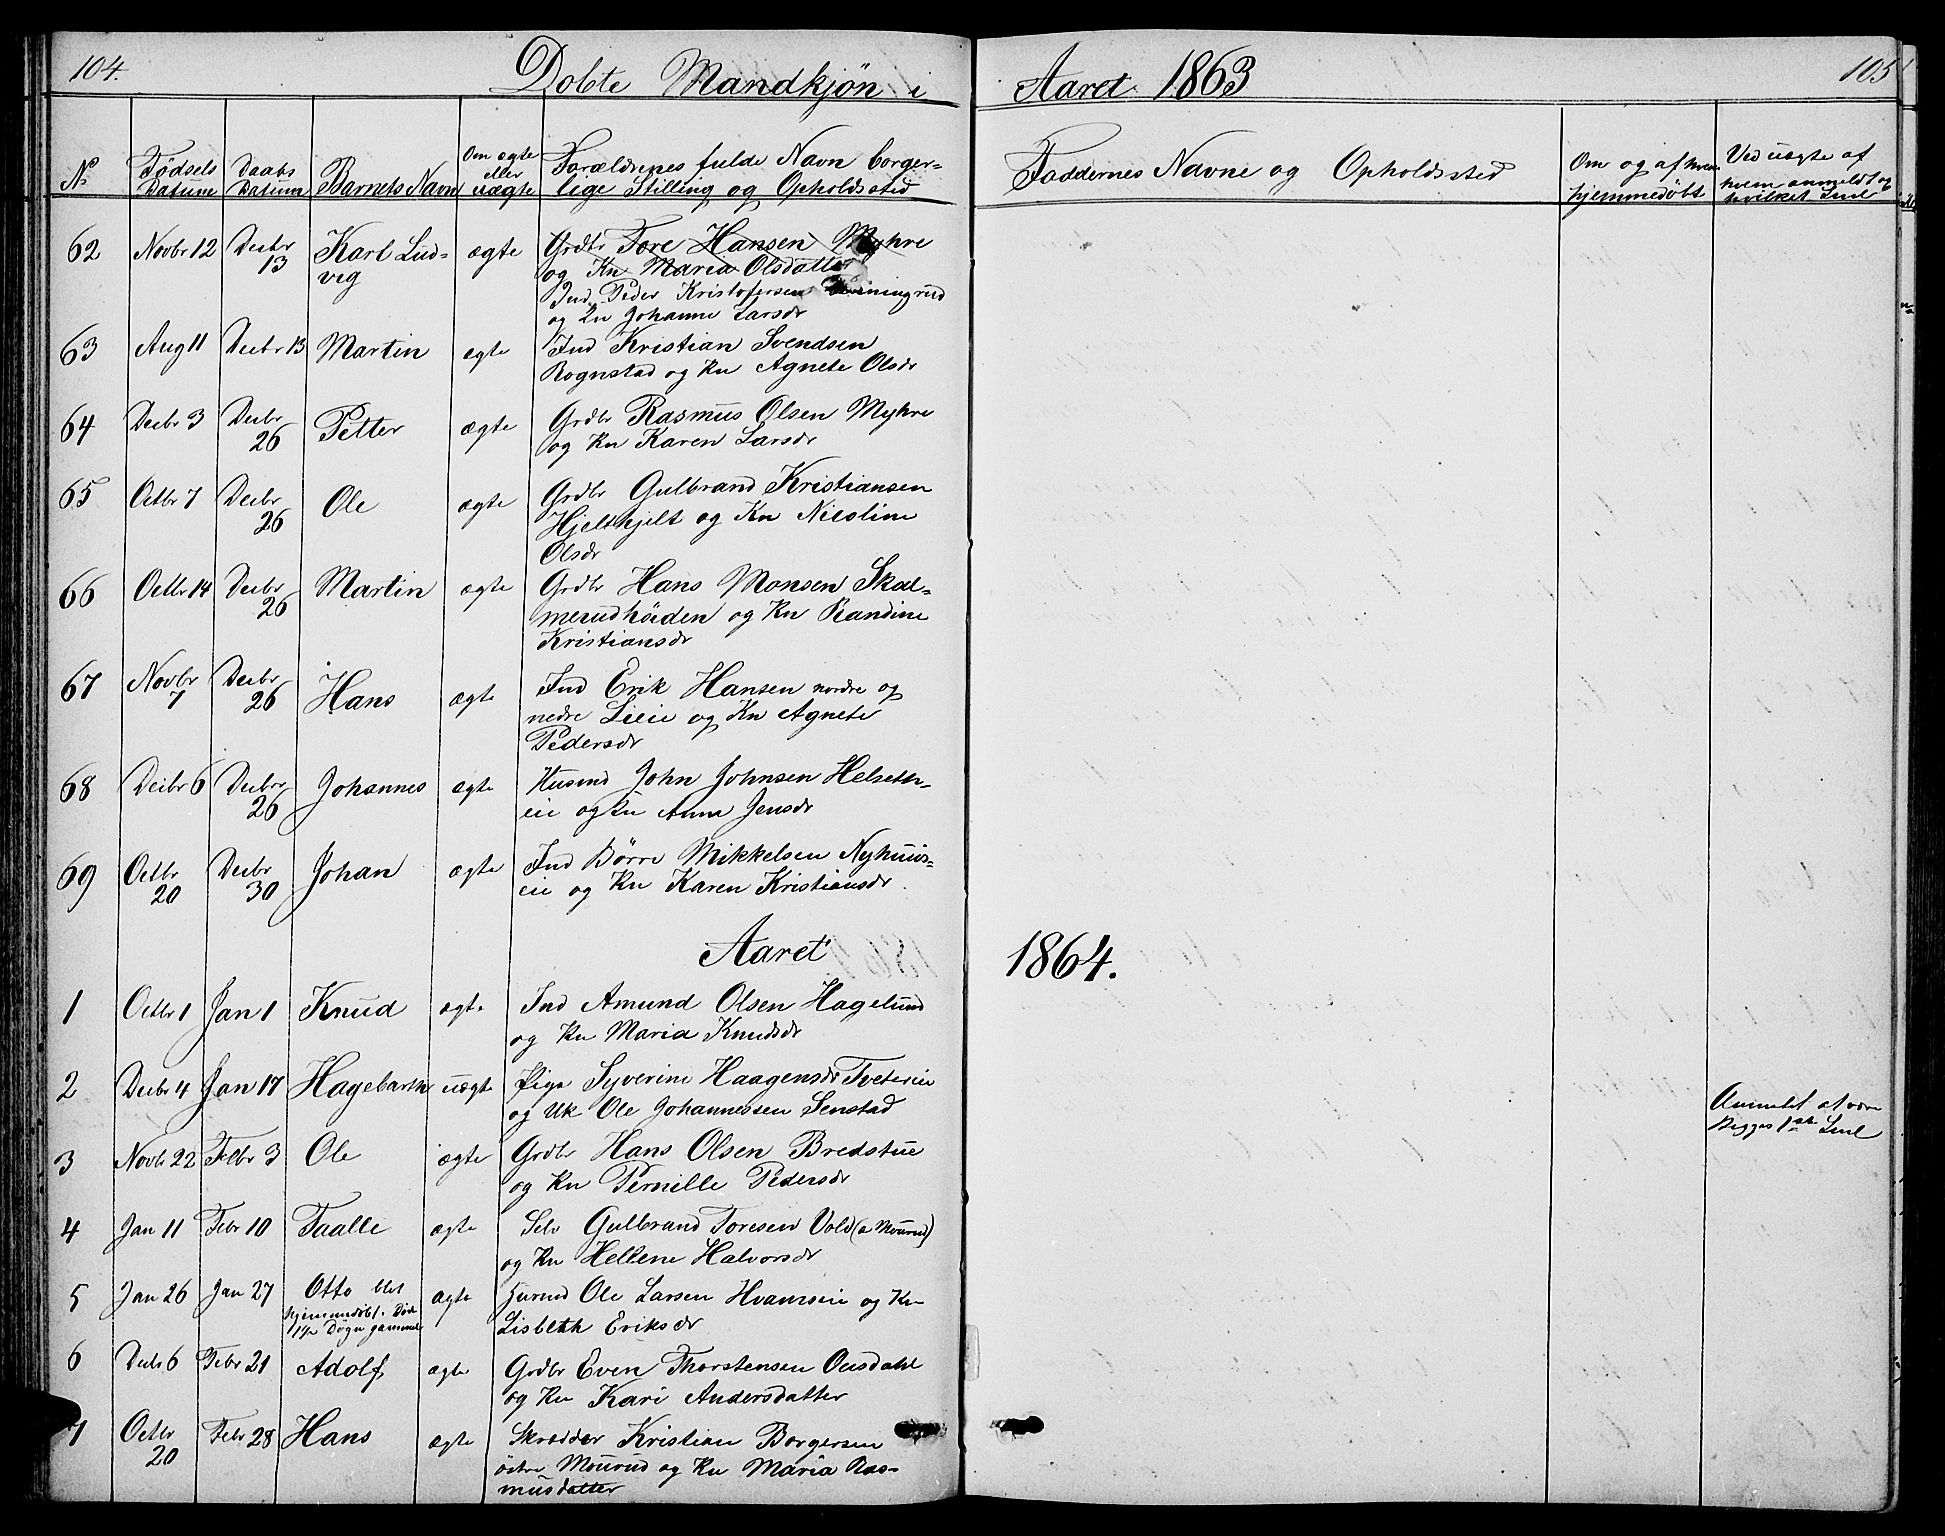 104.
Døbte Mandkjøn i
Aaret 1863
105
No
Fødsels Datum
Daabs Datum
Barnets Navn
Om ægte eller uægte
Forældrenes fulde Navn borger-
lige Stilling og Opholdssted
Faddernes Navne og Opholdssted
Om og af hvem
hjemmedøbt
Ved uægte af
hvem anmeldt og
hvilket Leiel
62 Novbr 12 Decbr 13 Karl Lud-
vig
ægte Grdbr Tore Hansen Myhre
og Kn Maria Olsdatter
Ind Peder Kristofersen
og Kn Johanne Larsdr
63 Aug 11 Decbr 13 Martin ægte Ind Kristian Svendsen
Rognstad og Kn Agnete Olsdr
64 Decbr 3 Decbr 26 Petter ægte Grdbr Rasmus Olsen Myhre
og Kn Karen Larsdr
65 Octbr 7 Decbr 26 Ole ægte Grdbr Gulbrand Kristiansen
Hjelthjelt og Kn Nicoline
Olsdr
66 Octbr 14 Decbr 26 Martin ægte Grdbr Hans Monsen Skol-
merudhöiden og Kn Randine
Kristiansdr
67 Novbr 7 Decbr 26 Hans ægte Ind Erik Hansen nordre og
nedre Lieie og Kn Agnete
Pedersdr
68 Decbr 6 Decbr 26 Johannes ægte Husmd John Johnsen Helseth-
eie og Kn Anne Jensdr
69 Octbr 20 Decbr 30 Johan ægte Ind Børre Mikkelsen Nyhuus-
eie og Kn Karen Kristiansdr
Aaret
1864.
1 Octbr 1 Jan 1 Knud ægte Ind Amund Olsen Hagelund
og Kn Maria Knudsdr
2 Decbr 4 Jan 17 Hagebarth uægte Pige Syverine Haagensdr Tvetereie
og Uk Ole Johannessen Senstad
Anmeldt at være
Begges 1ste Leiel
3 Novbr 22 Febr 3 Ole ægte Grdbr Hans Olsen Bredstue
og Kn Pernille Pedersdr
4 Jan 11 Febr 10 Taalle ægte Selv Gulbrand Toresen Vold (a Mourud)
og Kn Hellene Halvorsdr
5 Jan 26 Jan 27 Otto blev
hjemmedøbt. Døde
1½ Døgn gammel
ægte Husmd Ole Larsen Hvamseie og Kn
Lisbeth Eriksdr
6 Decbr 6 Febr 21 Adolf ægte Grdbr Even Thorstensen Ousdahl
og Kn Kari Andersdatter
7 Octbr 20 Febr 28 Hans ægte Skrædder Kristian Borgersen
östre Mourud og Kn Maria Ras-
musdatter